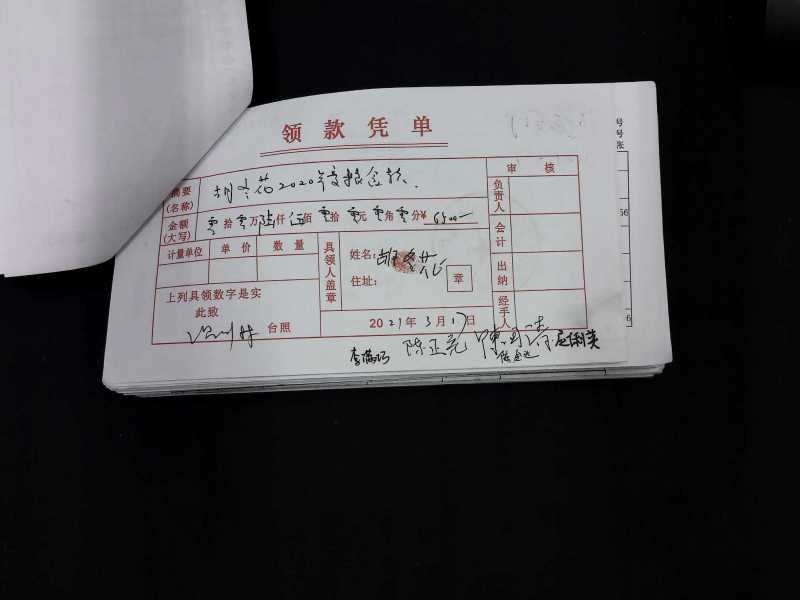 领款凭单
摘要(名称) 胡冬花2020年度粮食款.
审核
金额(大写) 零拾零万陆仟伍佰零拾零元零角零分¥ 6500—
负责人
会计
出纳
经手人
计量单位 单价 数量
具领人盖章
姓名: 胡冬花
住址:
章
上列具领数字是实
此致
台照
2021年3月17日
李满巧 陈正亮
号
号
张
56
6